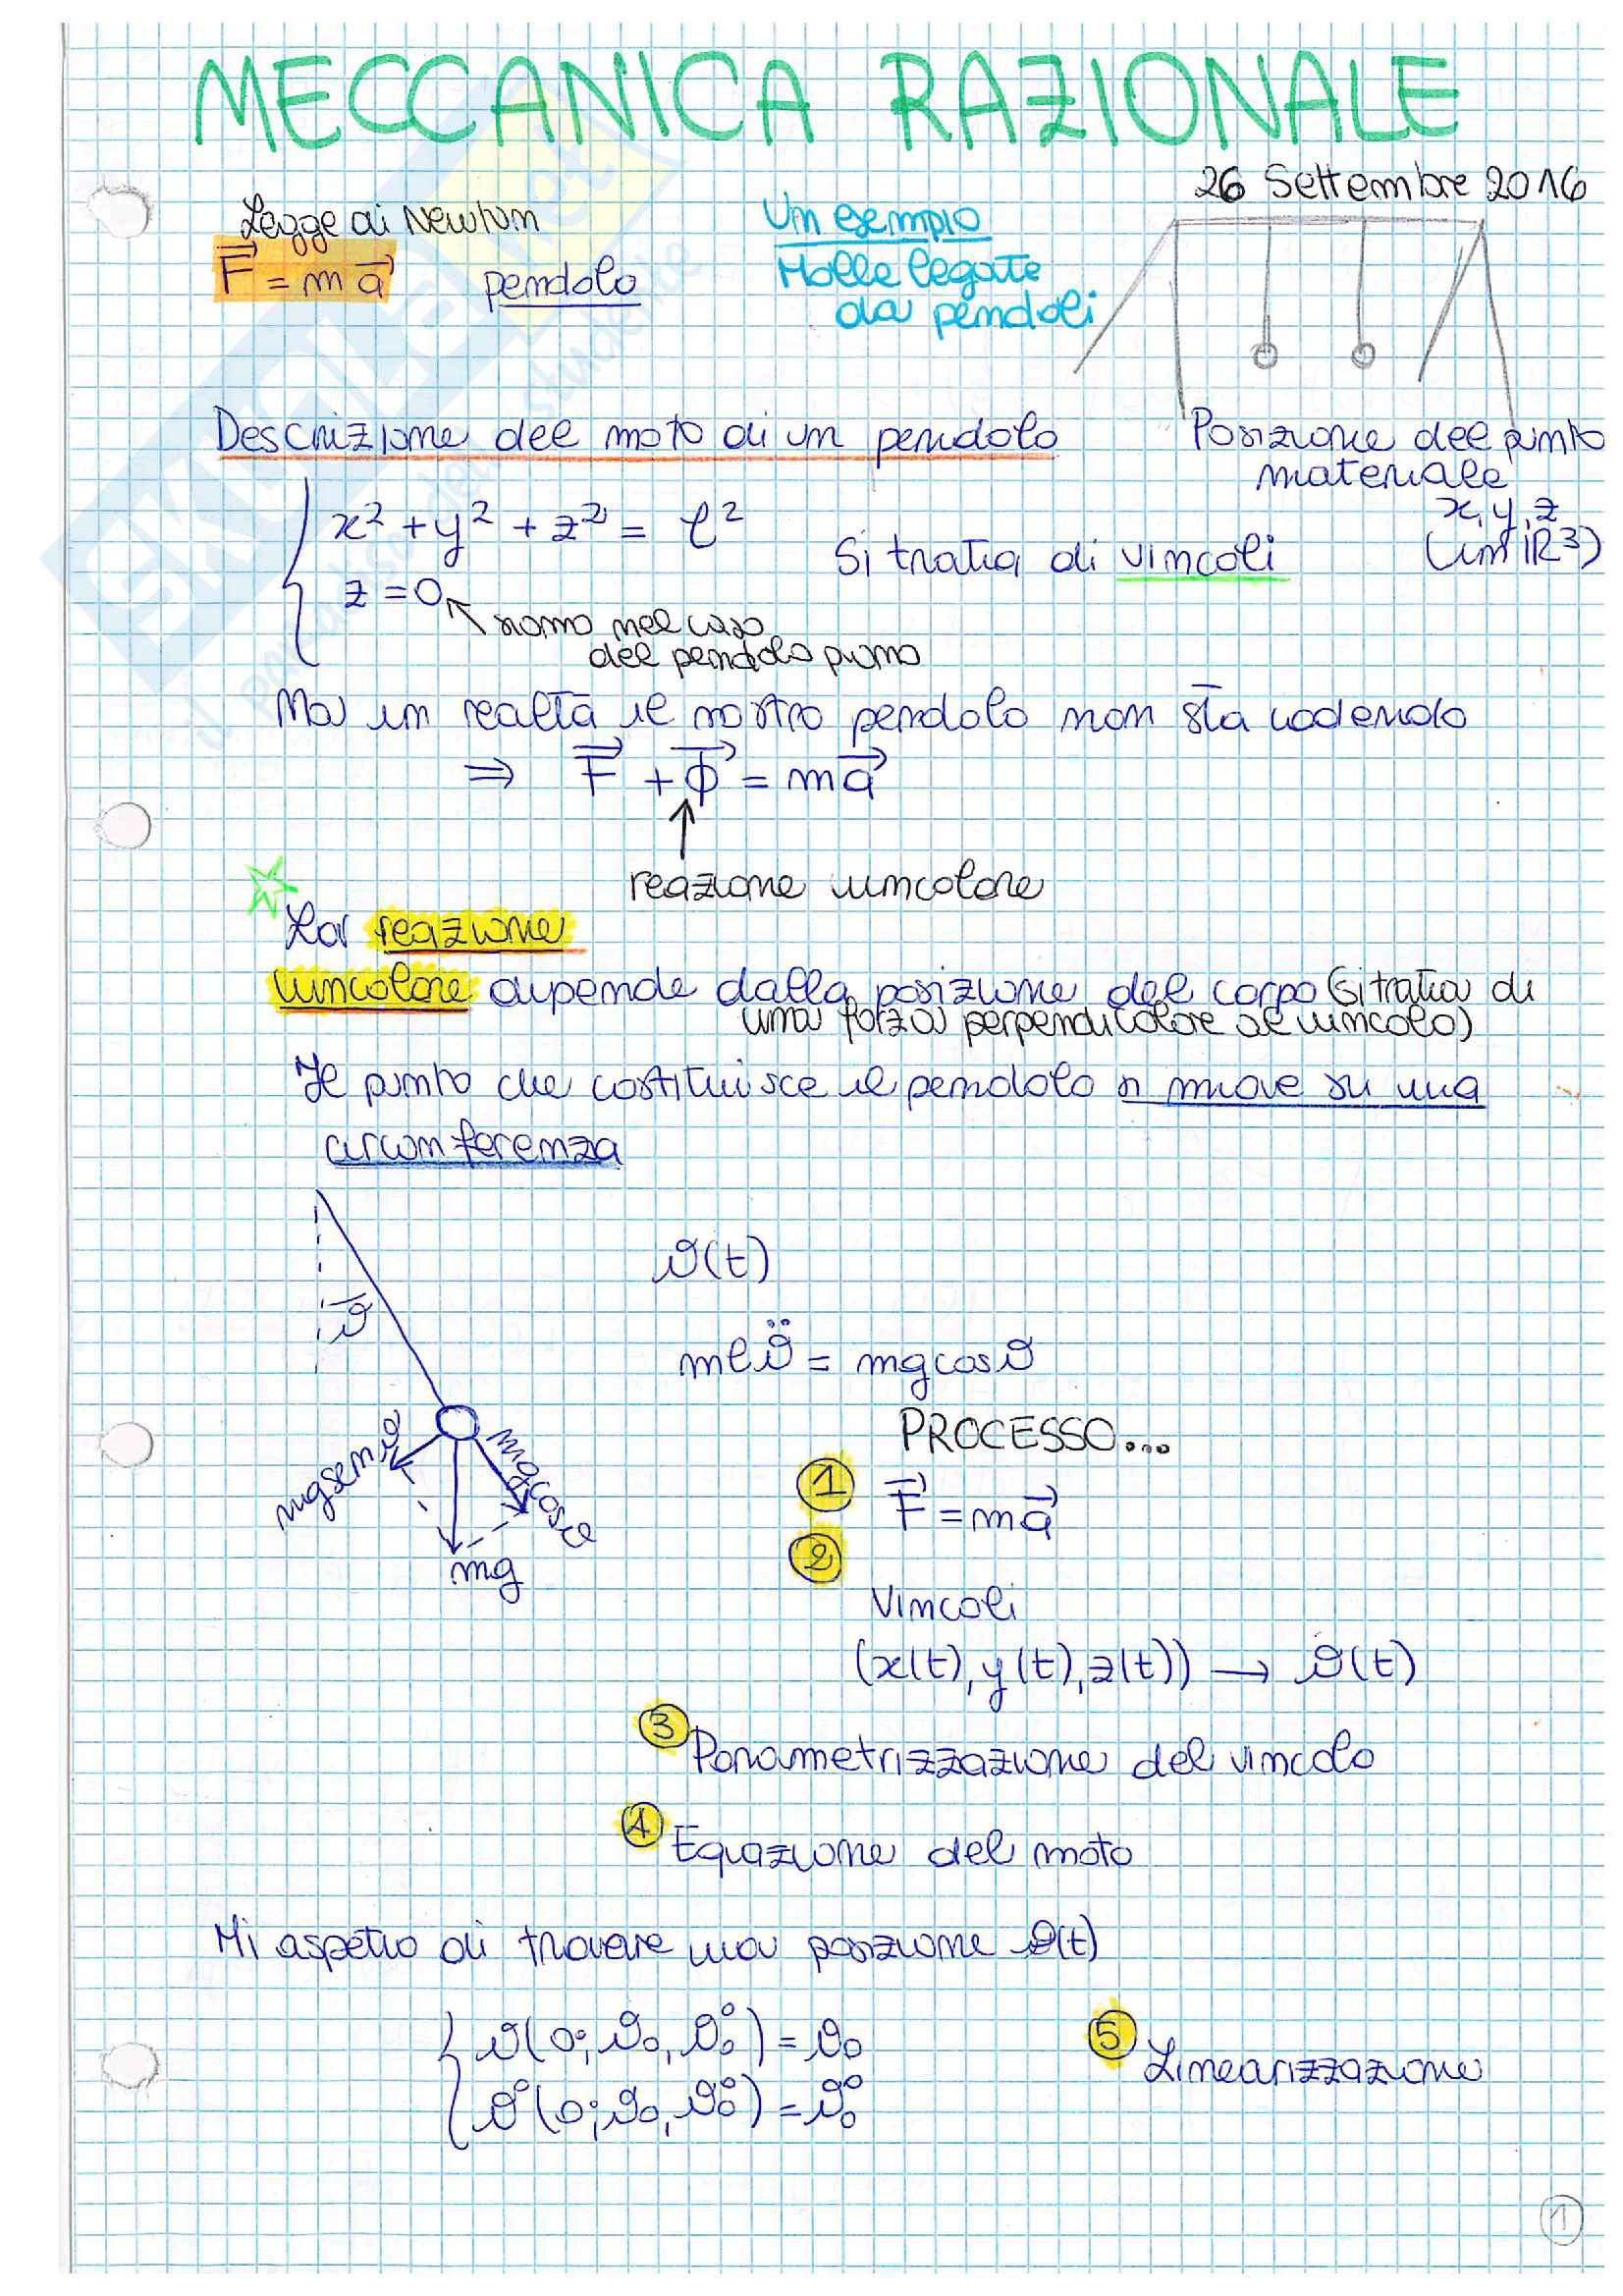 MECCANICA RAZIONALE
26 Settembre 2016
Legge di Newton
F⃗ = m a⃗
pendolo
Un esempio
Molle legate
da pendoli
Descrizione del moto di un pendolo
Posizione del punto
materiale
x, y, z
(in ℝ³)
x² + y² + z² = ℓ²
z = 0
Si tratta di vincoli
siamo nel caso
del pendolo piano
Ma in realtà il nostro pendolo non sta cadendo
⇒ F⃗ + Φ⃗ = m a⃗
reazione vincolare
La reazione
vincolare dipende dalla posizione del corpo (si tratta di
una forza perpendicolare al vincolo)
Il punto che costituisce il pendolo si muove su una
circonferenza
ϑ
ϑ(t)
mℓϑ̈ = mg cosϑ
mg senϑ
mg cosϑ
mg
PROCESSO...
1 F⃗ = m a⃗
2
Vincoli
(x(t), y(t), z(t)) → ϑ(t)
3 Parametrizzazione del vincolo
4 Equazione del moto
Mi aspetto di trovare una posizione ϑ(t)
ϑ(0; ϑ₀, ϑ̇₀) = ϑ₀
ϑ̇(0; ϑ₀, ϑ̇₀) = ϑ̇₀
5 Linearizzazione
1